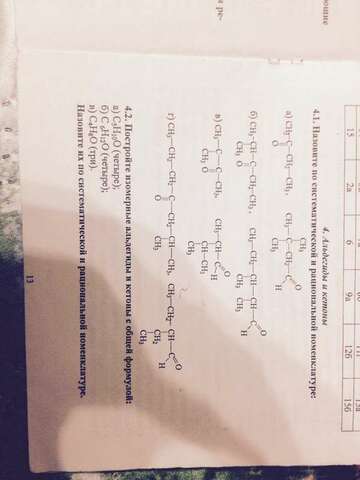 15 2а 6 9а 12б 15б
4. Альдегиды и кетоны
4.1. Назовите по систематической и рациональной номенклатуре:
а) CH₃—C—CH₂—CH₃,
O
CH₃
CH₃
O
H
б) CH₃—CH—C—CH₂—CH₃,
CH₃ O
CH₃
O
H
в) CH₃—C—C—CH₃,
CH₃
O
CH₃—CH—C
O
H
CH—CH₃
CH₃
г) CH₃—CH₂—CH₂—C—CH₂—CH—CH₃,
O
CH₃
CH₃—CH₂—CH—C
O
H
CH₂
CH₃
4.2. Постройте изомерные альдегиды и кетоны с общей формулой:
а) C₅H₁₀O (четыре);
б) C₆H₁₂O (четыре);
в) C₄H₈O (три).
Назовите их по систематической и рациональной номенклатуре.
13